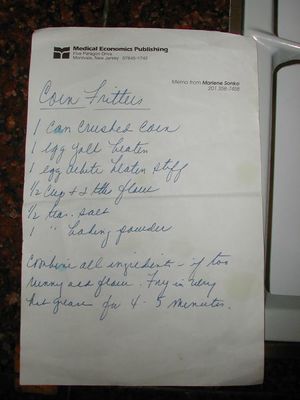 Medical Economics Publishing
Five Paragon Drive
Montvale, New Jersey 07645-1742
Memo from Marlene Sonke
201 358-7408
Corn Fritters
1 can crushed corn
1 egg yolk beaten
1 egg white beaten stiff
1/2 cup + 2 tbs flour
1/2 tea. salt
1 " baking powder
Combine all ingredients - if too
runny add flour. Fry in very
hot grease for 4 - 5 minutes.